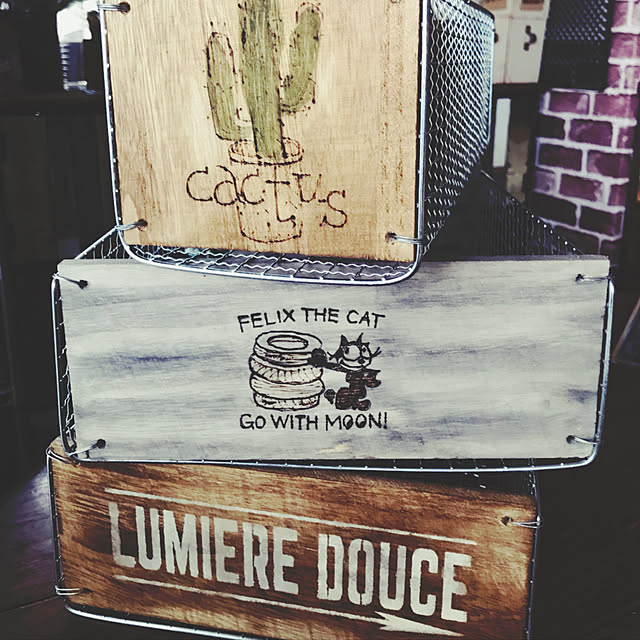 cactus
FELIX THE CAT
GO WITH MOON!
LUMIERE DOUCE